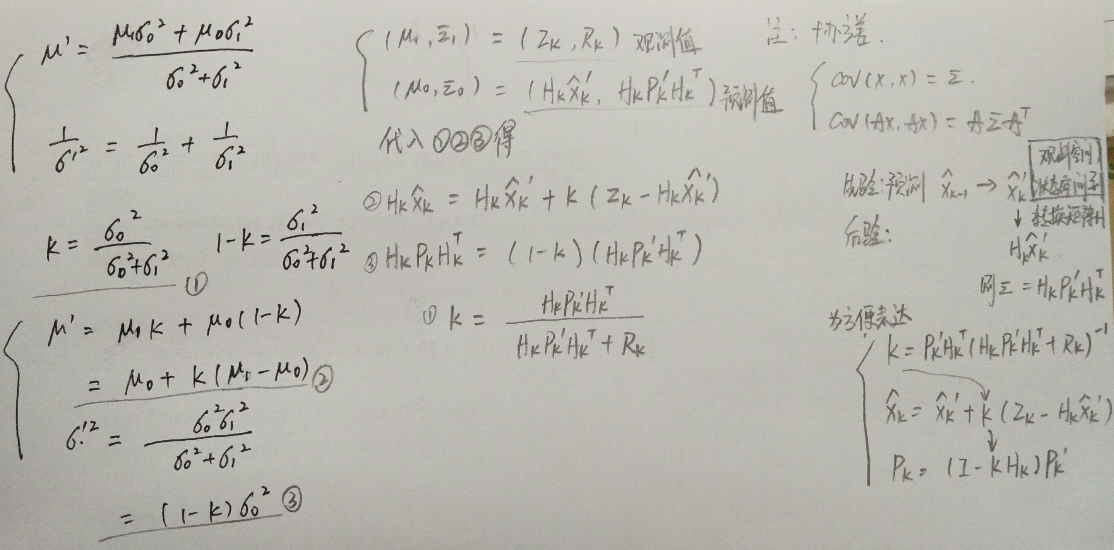 μ' = (μ₁σ₀² + μ₀σ₁²) / (σ₀² + σ₁²)
1/σ'² = 1/σ₀² + 1/σ₁²
k = σ₀² / (σ₀² + σ₁²)   1-k = σ₁² / (σ₀² + σ₁²)
①
μ' = μ₁k + μ₀(1-k)
= μ₀ + k(μ₁ - μ₀) ②
σ'² = σ₀²σ₁² / (σ₀² + σ₁²)
= (1-k)σ₀² ③
(μ₁, Σ₁) = (Z_K, R_K) 观测值
(μ₀, Σ₀) = (H_K X̂_K', H_K P_K' H_K^T) 预测值
代入①②③得
② H_K X̂_K = H_K X̂_K' + K (Z_K - H_K X̂_K')
③ H_K P_K H_K^T = (1-k)(H_K P_K' H_K^T)
① k = H_K P_K' H_K^T / (H_K P_K' H_K^T + R_K)
注: 协方差.
cov(x, x) = Σ.
cov(Ax, Ax) = AΣA^T
先验:预测 X̂_{K-1} → X̂_K'
观测空间
状态空间
转换矩阵H
↓
后验: H_K X̂_K'
则Σ = H_K P_K' H_K^T
为方便表达
K = P_K' H_K^T (H_K P_K' H_K^T + R_K)⁻¹
X̂_K = X̂_K' + K (Z_K - H_K X̂_K')
P_K = (I - K H_K) P_K'